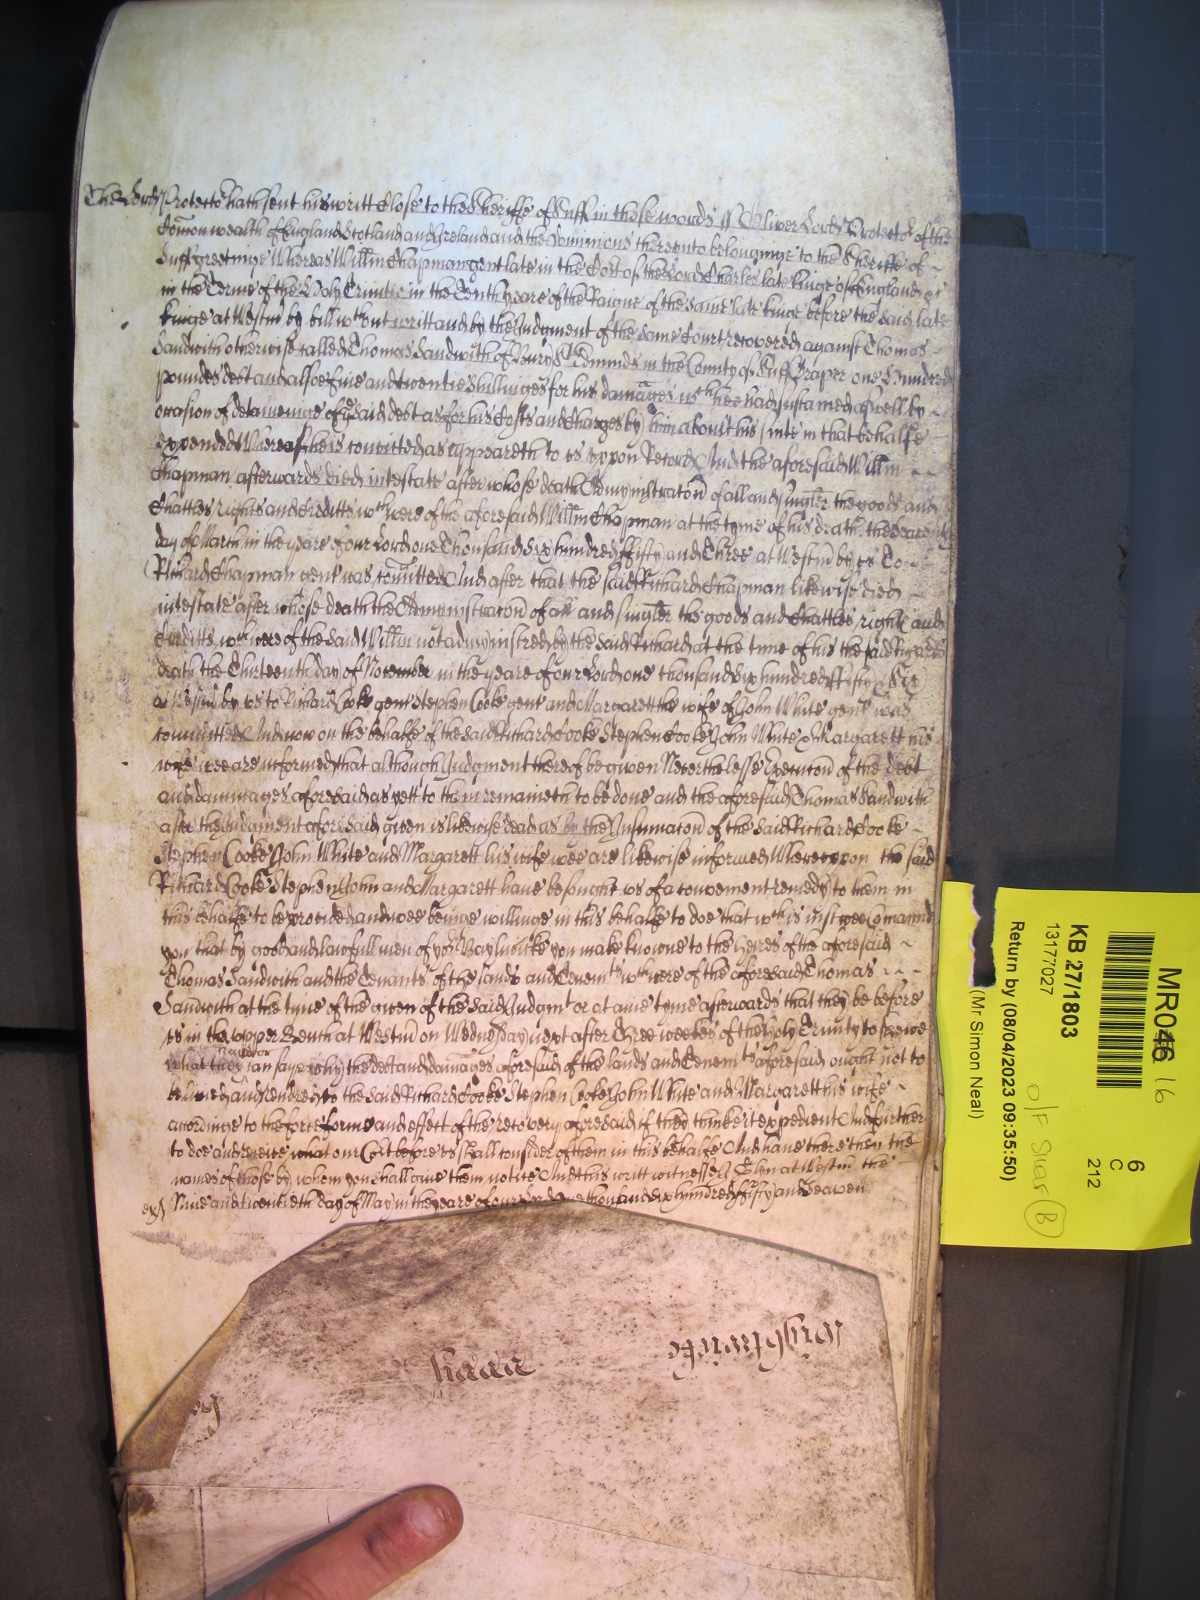 The Lord Protector hath sent his writt Close to the Sheriffe of Suff in these words ss Oliver Lord Protector of the
Comon wealth of England Scotland and Ireland and the Dominions thereunto belonginge to the Sheriffe of
Suff greetinge Whereas Willm Chapman gent late in the Cort of the Lord Charles late kinge of England
in the Terme of the Holy Trinitie in the Tenth yeare of the Raigne of the same late kinge before the said late
kinge at Westm by bill wthout writt and by the Judgment of the same Court recovered against Thomas
Sandwith otherwise called Thomas Sandwith of Bury St Edmunds in the County of Suff Draper one hundred
poundes debt and alsoe five and twentie shillinges for his damages wch hee had susteined aswell by
occasion of deteineinge of ye said debt as for his Costs and Charges by him about his suite in that behalfe
expended Whereof he is convicted as appeareth to us uppon Record And the aforesaid Willm
Chapman afterwards died intestate after whose death Admynistracon of all and singler the goods and
Chattles rights and Creditts wch were of the aforesaid Willm Chapman at the tyme of his death the
day of March in the yeare of our Lord one Thousand six hundred ffifty and Three at Westm by us to
Richard Chapman gent was comitted And after that the said Richard Chapman likewise died
intestate after whose death the Administracon of all and singler the goods and Chattles right and
Creditts wch were of the said Willm not administred by the said Richard at the tyme of his the said Richards
death the Thirteenth day of November in the yeare of our Lord one thousand six hundred ffifty Six
at Westm by us to Richard Cooke gent Stephen Cooke gent and Margarett the wife of John White gent was
comitted And now on the behalfe of the said Richard Cooke Stephen Cooke John White & Margarett his
wife wee are informed that although Judgment thereof be given Neverthelesse Execucon of the debt
and dammages aforesaid as yett to them remaineth to be done and the aforesaid Thomas Sandwith
after the Judgment aforesaid given is likewise dead as by the Insinuacon of the said Richard Cooke
Stephen Cooke John White and Margarett his wife wee are likewise informed Whereupon the said
Richard Cooke Stephen John and Margarett have besought us of a convenient remedy to them in
this behalfe to be provided and wee beinge willinge in this behalfe to doe that wch is just wee Comannd
you that by good and lawfull men of yor Bayliwicke you make knowne to the Heires of the aforesaid
Thomas Sandwith and the Tenants of the lands and Tenemts wch were of the aforesaid Thomas
Sandwith at the tyme of the given of the said Judgmt or at anie tyme afterwards that they be before
us in the upper Bench at Westm on Wednesday next after Three weekes of the Holy Trinity to shewe
what they can say why the debt and damages aforesaid of the lands and Tenemts aforesaid ought not to
be livied and rendred to the said Richard Cooke Stephen Cooke John White and Margarett his wife
accordinge to the force forme and effect of the recovery aforesaid if they thinke it expedient And further
to doe and receive what our Cort before us shall consider of them in this behalfe And have there then the
names of those by whom you shall give them notice And this writt witnesse J Glyn at Westm the
Nine and twentieth day of May in the yeare of our Lord One thousand six hundred ffifty and Seaven
MR046 16
KB 27/1803
13177027
Return by (08/04/2023 09:35:50)
(Mr Simon Neal)
6
C
212
O/F
B